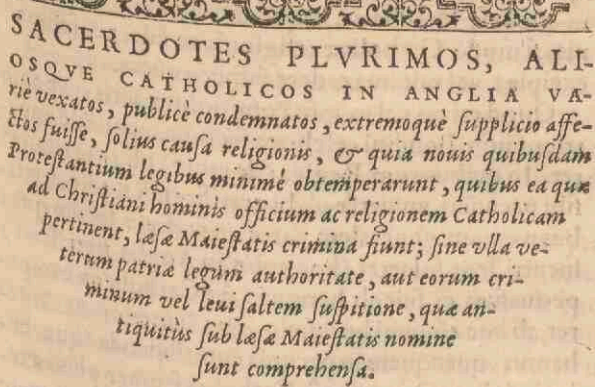 SACERDOTES PLVRIMOS, ALI-
OSQVE CATHOLICOS IN ANGLIA VA-
riè vexatos, publicè condemnatos, extremoquè ſupplicio affe-
ctos fuiſſe, ſolius cauſa religionis, & quia nouis quibuſdam
Proteſtantium legibus minimè obtemperarunt, quibus ea quæ
ad Chriſtiani hominis officium ac religionem Catholicam
pertinent, læſæ Maieſtatis crimina fiunt; ſine vlla ve-
terum patriæ legum authoritate, aut eorum cri-
minum vel leui ſaltem ſuſpitione, quæ an-
tiquitùs ſub læſæ Maieſtatis nomine
ſunt comprehenſa.